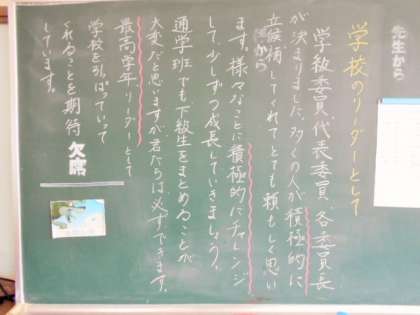 先生から
学校のリーダーとして
学級委員、代表委員、各委員長
が決まりました。多くの人が積極的に
立候補してくれてとても頼もしく思い
ます。様々なことに積極的にチャレンジ
して、少しずつ成長していきましょう。
通学班でも下級生をまとめることが
大変だと思いますが君たちは必ずできます。
最高学年、リーダーとして
学校を引っぱっていって
くれることを期待
しています。
欠席